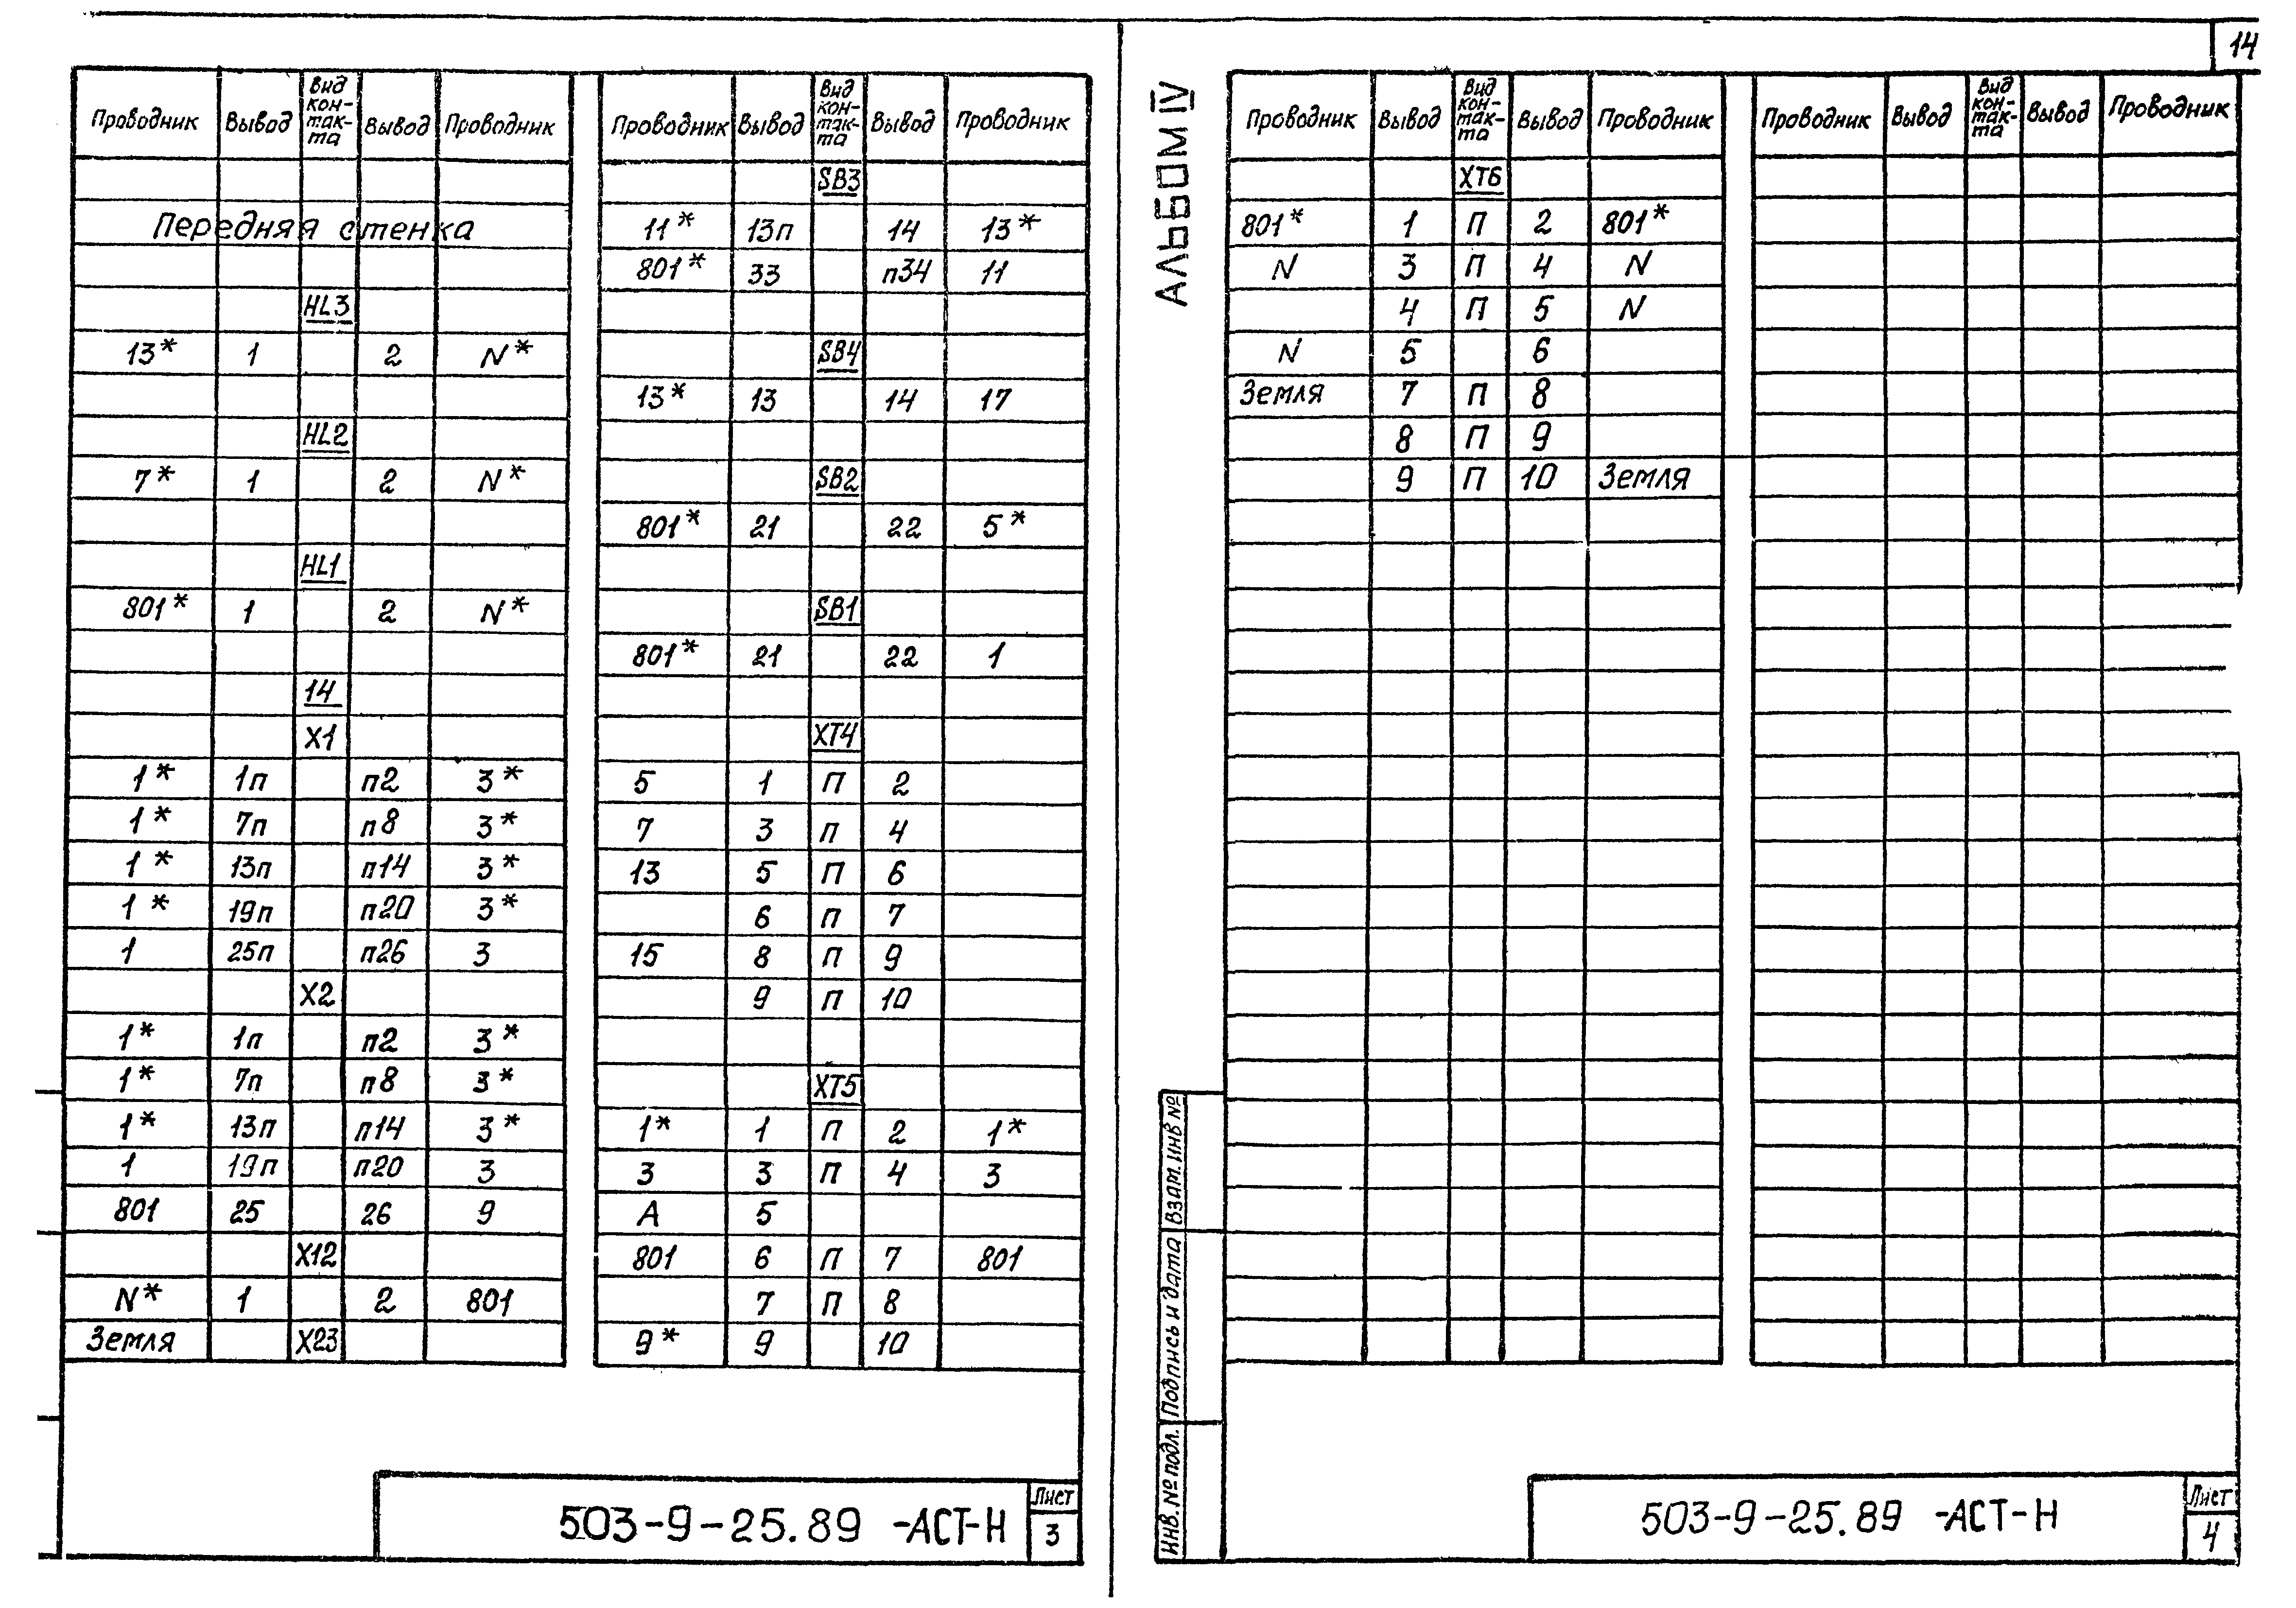 14
Проводник Вывод Вид кон-так-та Вывод Проводник
Передняя стенка
HL3
13* 1 2 N*
HL2
7* 1 2 N*
HL1
801* 1 2 N*
14
X1
1* 1п п2 3*
1* 7п п8 3*
1* 13п п14 3*
1* 19п п20 3*
1 25п п26 3
X2
1* 1п п2 3*
1* 7п п8 3*
1* 13п п14 3*
1 19п п20 3
801 25 26 9
X12
N* 1 2 801
Земля X23
Проводник Вывод Вид кон-так-та Вывод Проводник
SB3
11* 13п 14 13*
801* 33 п34 11
SB4
13* 13 14 17
SB2
801* 21 22 5*
SB1
801* 21 22 1
XT4
5 1 П 2
7 3 п 4
13 5 П 6
6 П 7
15 8 П 9
9 П 10
XT5
1* 1 П 2 1*
3 3 П 4 3
А 5
801 6 П 7 801
7 П 8
9* 9 10
503-9-25.89 -АСТ-Н
Лист
3
АЛЬБОМ IV
Проводник Вывод Вид кон-так-та Вывод Проводник
XT6
801* 1 П 2 801*
N 3 П 4 N
4 П 5 N
N 5 6
Земля 7 П 8
8 П 9
9 П 10 Земля
Проводник Вывод Вид кон-так-та Вывод Проводник
Инв. № подл. Подпись и дата Взам. инв №
503-9-25.89 -АСТ-Н
Лист
4